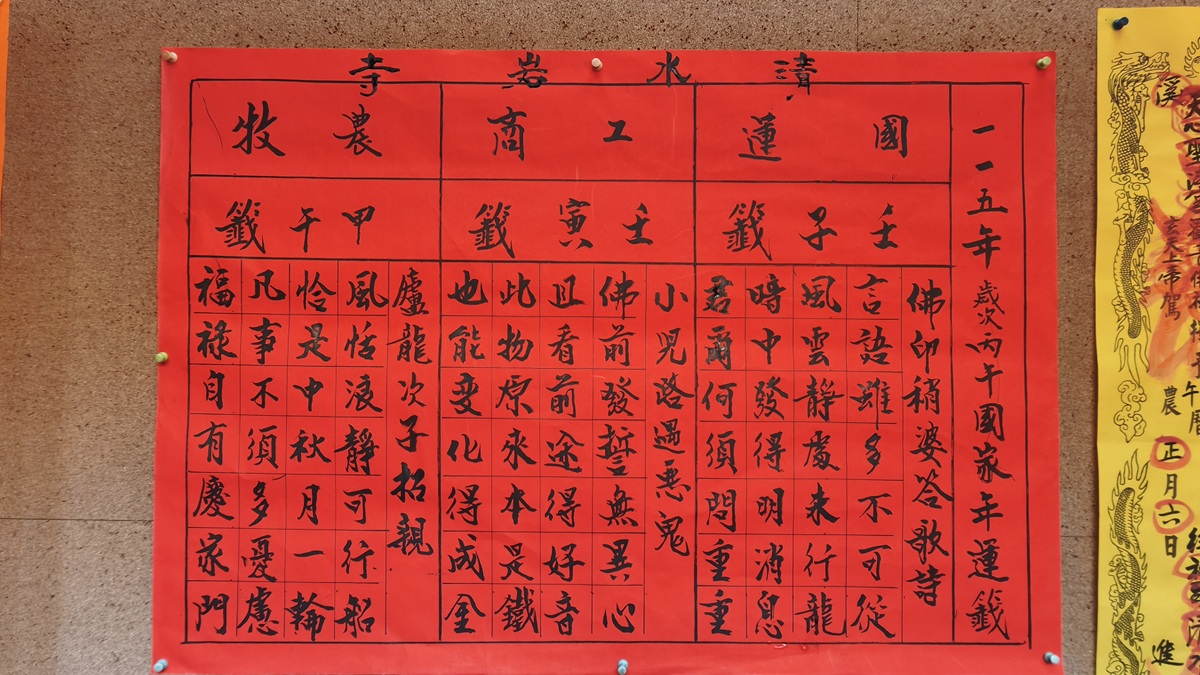 清水岩寺
一一五年歲次丙午國家年運籤
國運
壬子籤
佛印稍婆答歌詩
言語雖多不可從
風雲靜處未行龍
時中發得明消息
君爾何須問重重
工商
壬寅籤
小兒路遇惡鬼
佛前發誓無異心
且看前途得好音
此物原來本是鐵
也能變化得成金
農牧
甲午籤
廬龍次子招親
風恬浪靜可行船
恰是中秋月一輪
凡事不須多憂慮
福祿自有慶家門
玄天上帝駕
農
正月六日
進
溪